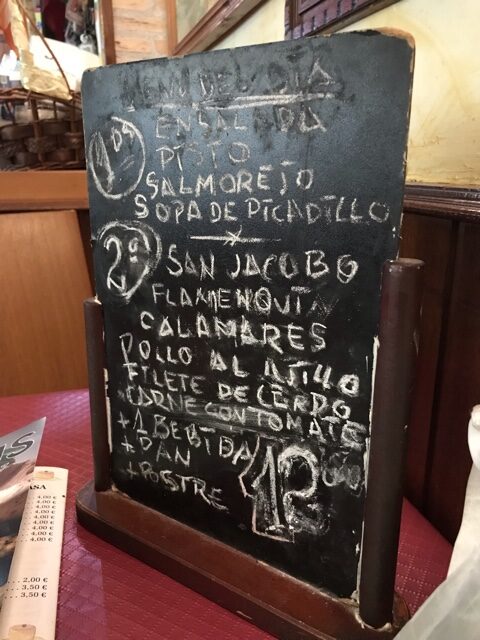 MENU DEL DIA
1º DS
ENSALADA
PISTO
SALMOREJO
SOPA DE PICADILLO
2º
SAN JACOBO
FLAMENQUIN
CALAMARES
POLLO AL AJILLO
FILETE DE CERDO
CARNE CON TOMATE
+ 1 BEBIDA
+ PAN
+ POSTRE
12
ASA
4,00 €
4,00 €
4,00 €
4,00 €
4,00 €
4,00 €
2,00 €
3,50 €
3,50 €